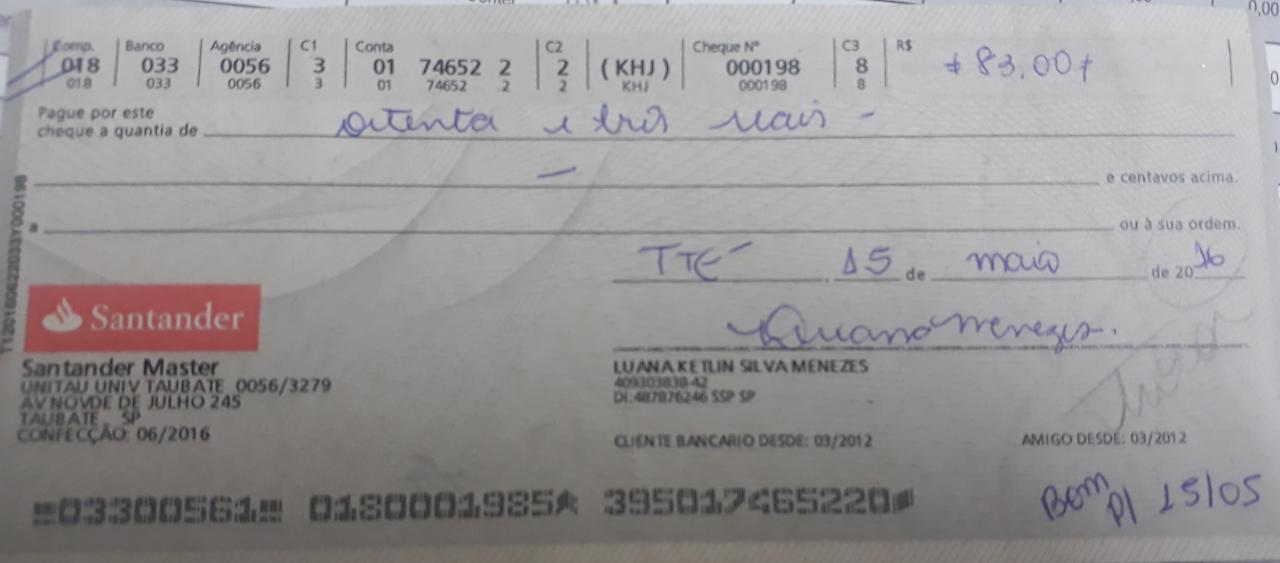 Comp. Banco Agência C1 Conta C2 Cheque Nº C3 R$
018 033 0056 3 01 74652 2 2 (KHJ) 000198 8 # 83,00 #
018 033 0056 3 01 74652 2 2 KHJ 000198 8
Pague por este
cheque a quantia de oitenta e três reais -
— e centavos acima.
a ou à sua ordem.
TTÉ , 15 de maio de 2016
Luana Menezes.
Santander
Santander Master
UNITAU UNIV TAUBATE 0056/3279
AV NOVDE DE JULHO 245
TAUBATE SP
CONFECÇÃO: 06/2016
LUANA KETLIN SILVA MENEZES
409303838-42
DI: 487876246 SSP SP
CLIENTE BANCARIO DESDE: 03/2012 AMIGO DESDE: 03/2012
03300561 0180001985 395017465220
Bom p/ 15/05